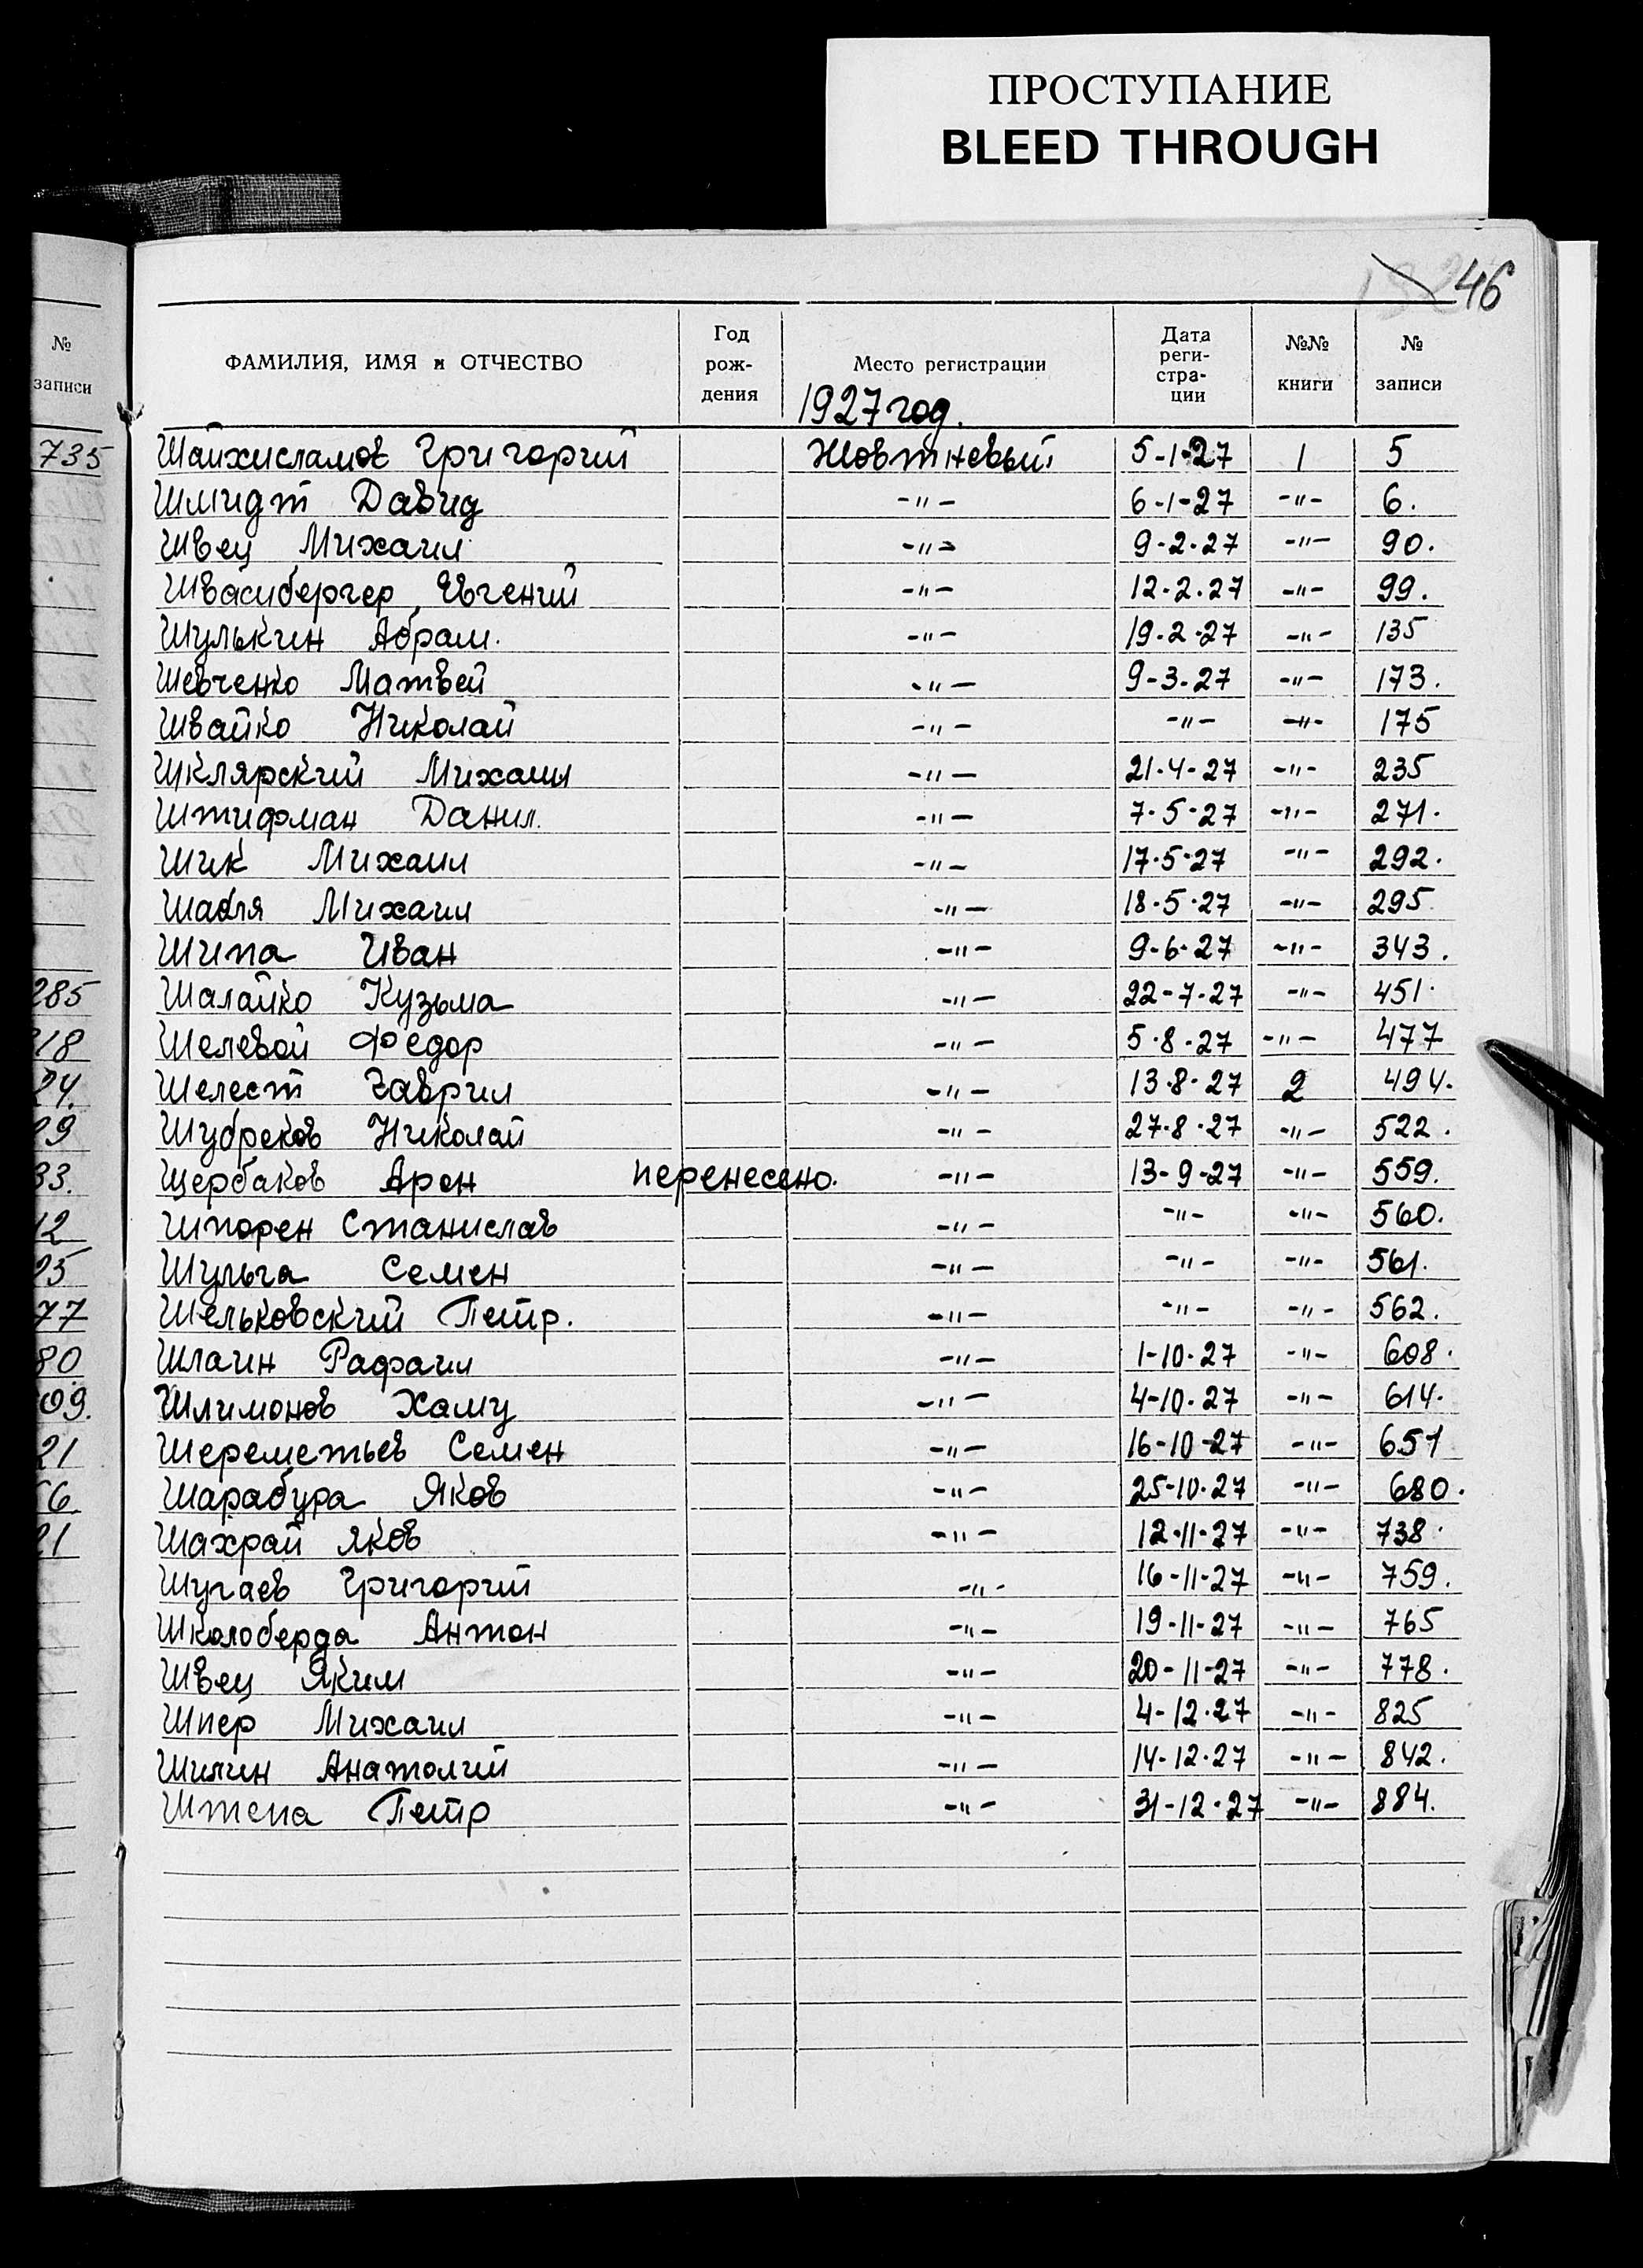 ПРОСТУПАНИЕ
BLEED THROUGH
46
№ записи
735
285
18
24.
09
33.
12
05
77
80
09.
21
56.
21
ФАМИЛИЯ, ИМЯ и ОТЧЕСТВО Год рождения Место регистрации Дата регистрации №№ книги № записи
1927 год.
Шайхисламов Григорий Жовтневый 5-1-27 1 5
Шмидт Давид -"- 6-1-27 -"- 6.
Швец Михаил -"- 9-2-27 -"- 90.
Швайбергер Евгений -"- 12-2-27 -"- 99.
Шулькин Абрам. -"- 19-2-27 -"- 135
Шевченко Матвей -"- 9-3-27 -"- 173.
Швайко Николай -"- -"- -"- 175
Шклярский Михаил -"- 21-4-27 -"- 235
Штифман Данил. -"- 7-5-27 -"- 271.
Шик Михаил -"- 17-5-27 -"- 292.
Шабля Михаил -"- 18-5-27 -"- 295
Шипа Иван -"- 9-6-27 -"- 343.
Шалайко Кузьма -"- 22-7-27 -"- 451.
Шелевой Федор -"- 5-8-27 -"- 477
Шелест Гаврил -"- 13-8-27 2 494.
Шубреков Николай -"- 27-8-27 -"- 522.
Щербаков Арон перенесено. -"- 13-9-27 -"- 559.
Шпорен Станислав -"- -"- -"- 560.
Шульга Семен -"- -"- -"- 561.
Шельковский Петр. -"- -"- -"- 562.
Шлаин Рафаил -"- 1-10-27 -"- 608.
Шлимонов Хаму -"- 4-10-27 -"- 614.
Шереметьев Семен -"- 16-10-27 -"- 651
Шарабура Яков -"- 25-10-27 -"- 680.
Шахрай Яков -"- 12-11-27 -"- 738.
Шугаев Григорий -"- 16-11-27 -"- 759.
Школоберда Антон -"- 19-11-27 -"- 765
Швец Яким -"- 20-11-27 -"- 778.
Шпер Михаил -"- 4-12-27 -"- 825
Шилин Анатолий -"- 14-12-27 -"- 842.
Штепа Петр -"- 31-12-27 -"- 884.